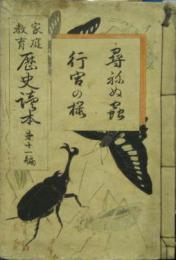 家庭
教育
歴史讀本
第十一編
尋ねぬ蟲
行宮の桜